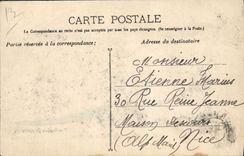 CARTE POSTALE
La Correspondance au recto n'est pas acceptée par tous les pays étrangers. (Se renseigner à la Poste.)
Partie réservée à la correspondance:
Adresse du destinataire
Monsieur
Etienne Marius
30 Rue Reine Jeanne
Maison
(Alp Mar) Nice